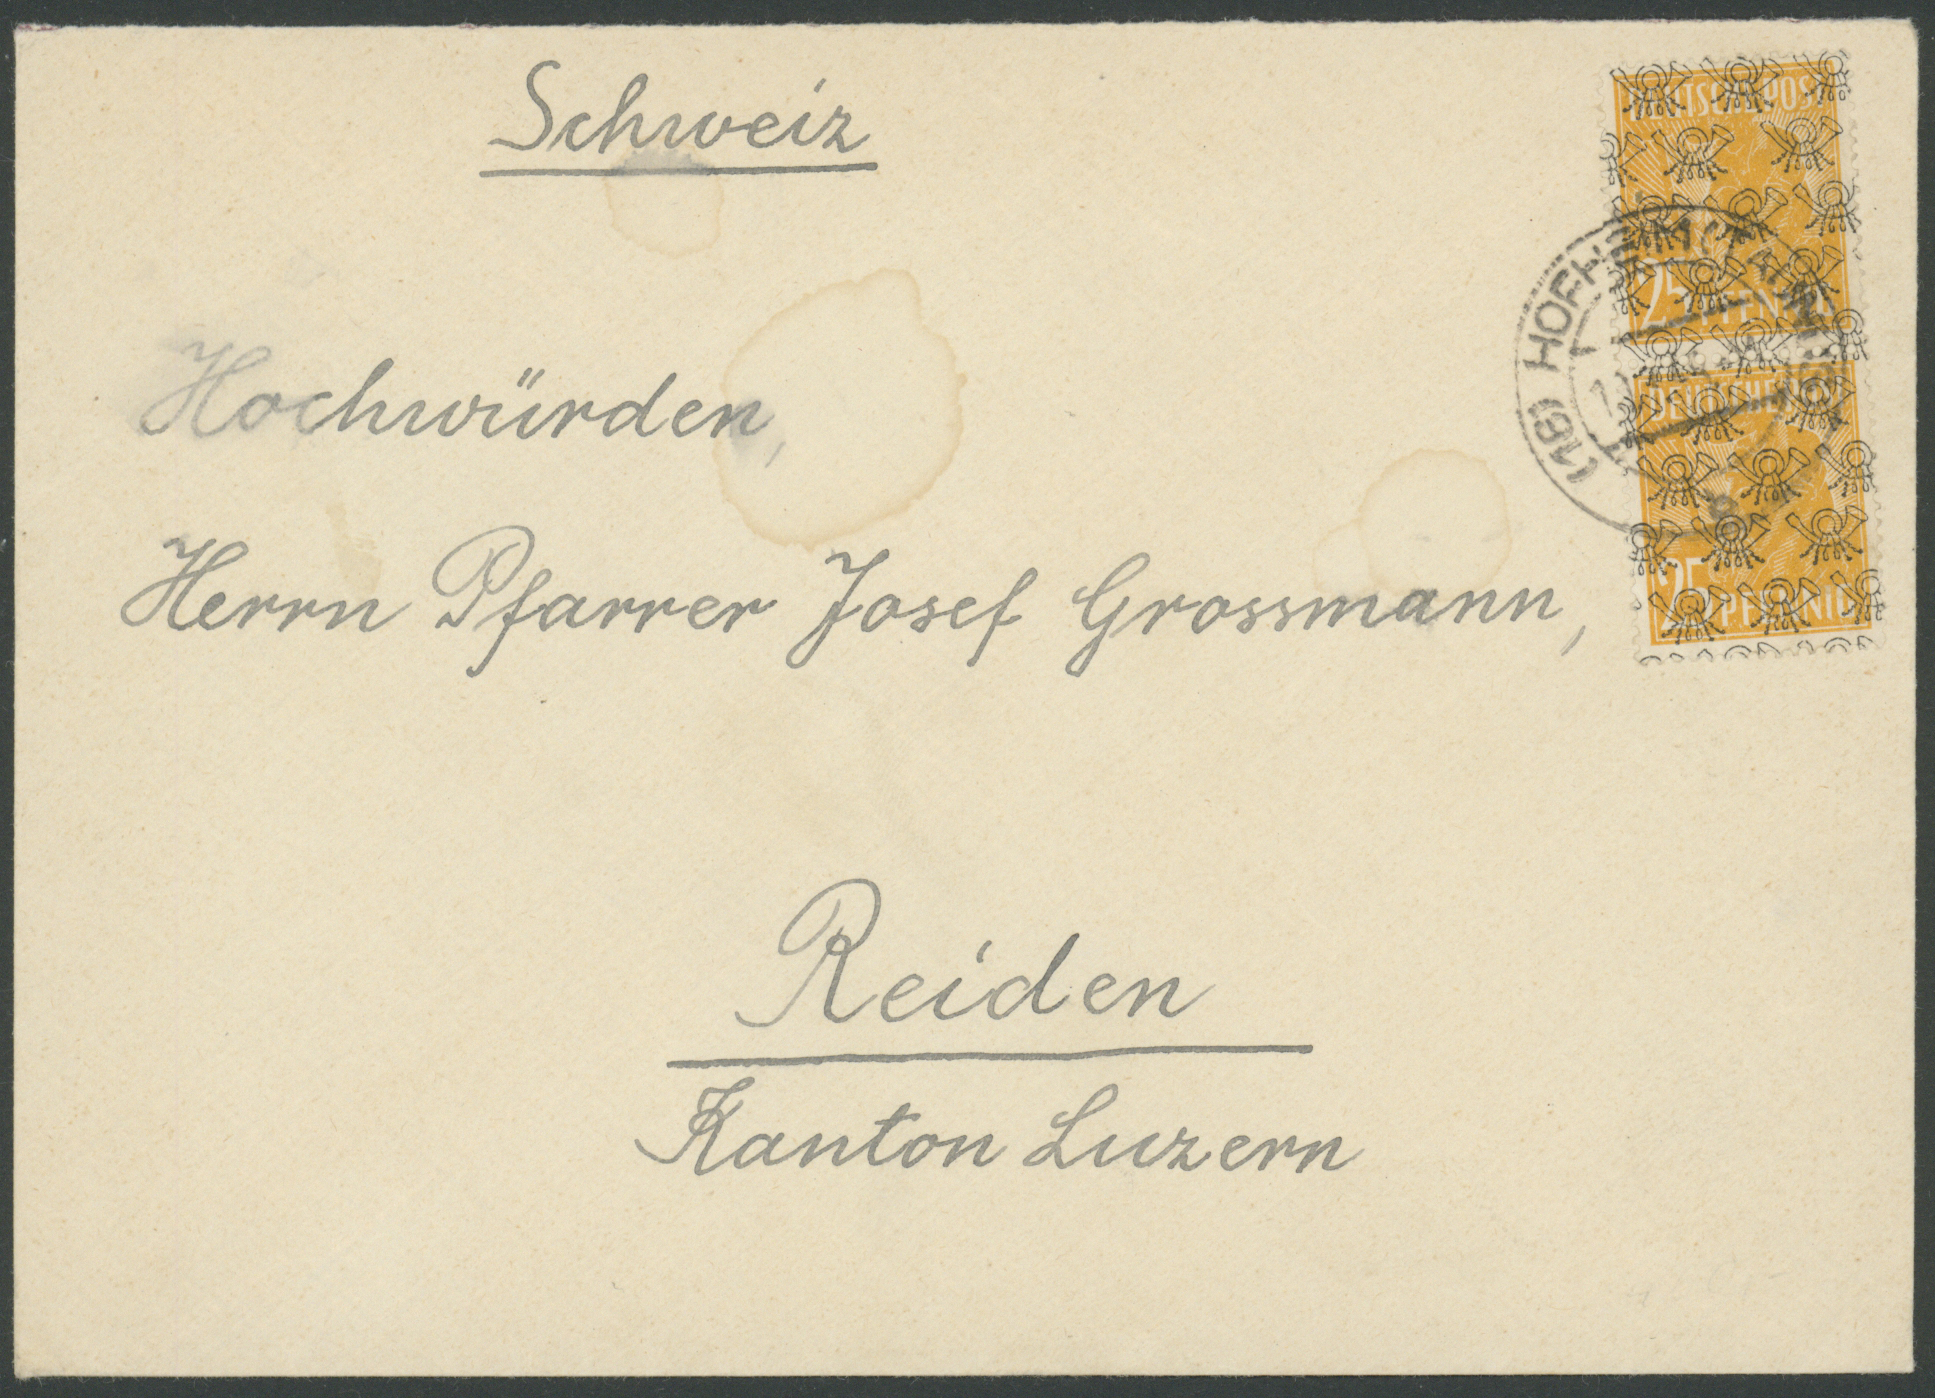 Schweiz
Hochwürden,
Herrn Pfarrer Josef Grossmann,
Reiden
Kanton Luzern
DEUTSCHE POST
25 PFENNIG
DEUTSCHE
25 PFENNIG
(16) HOFHEIM (TAUNUS)